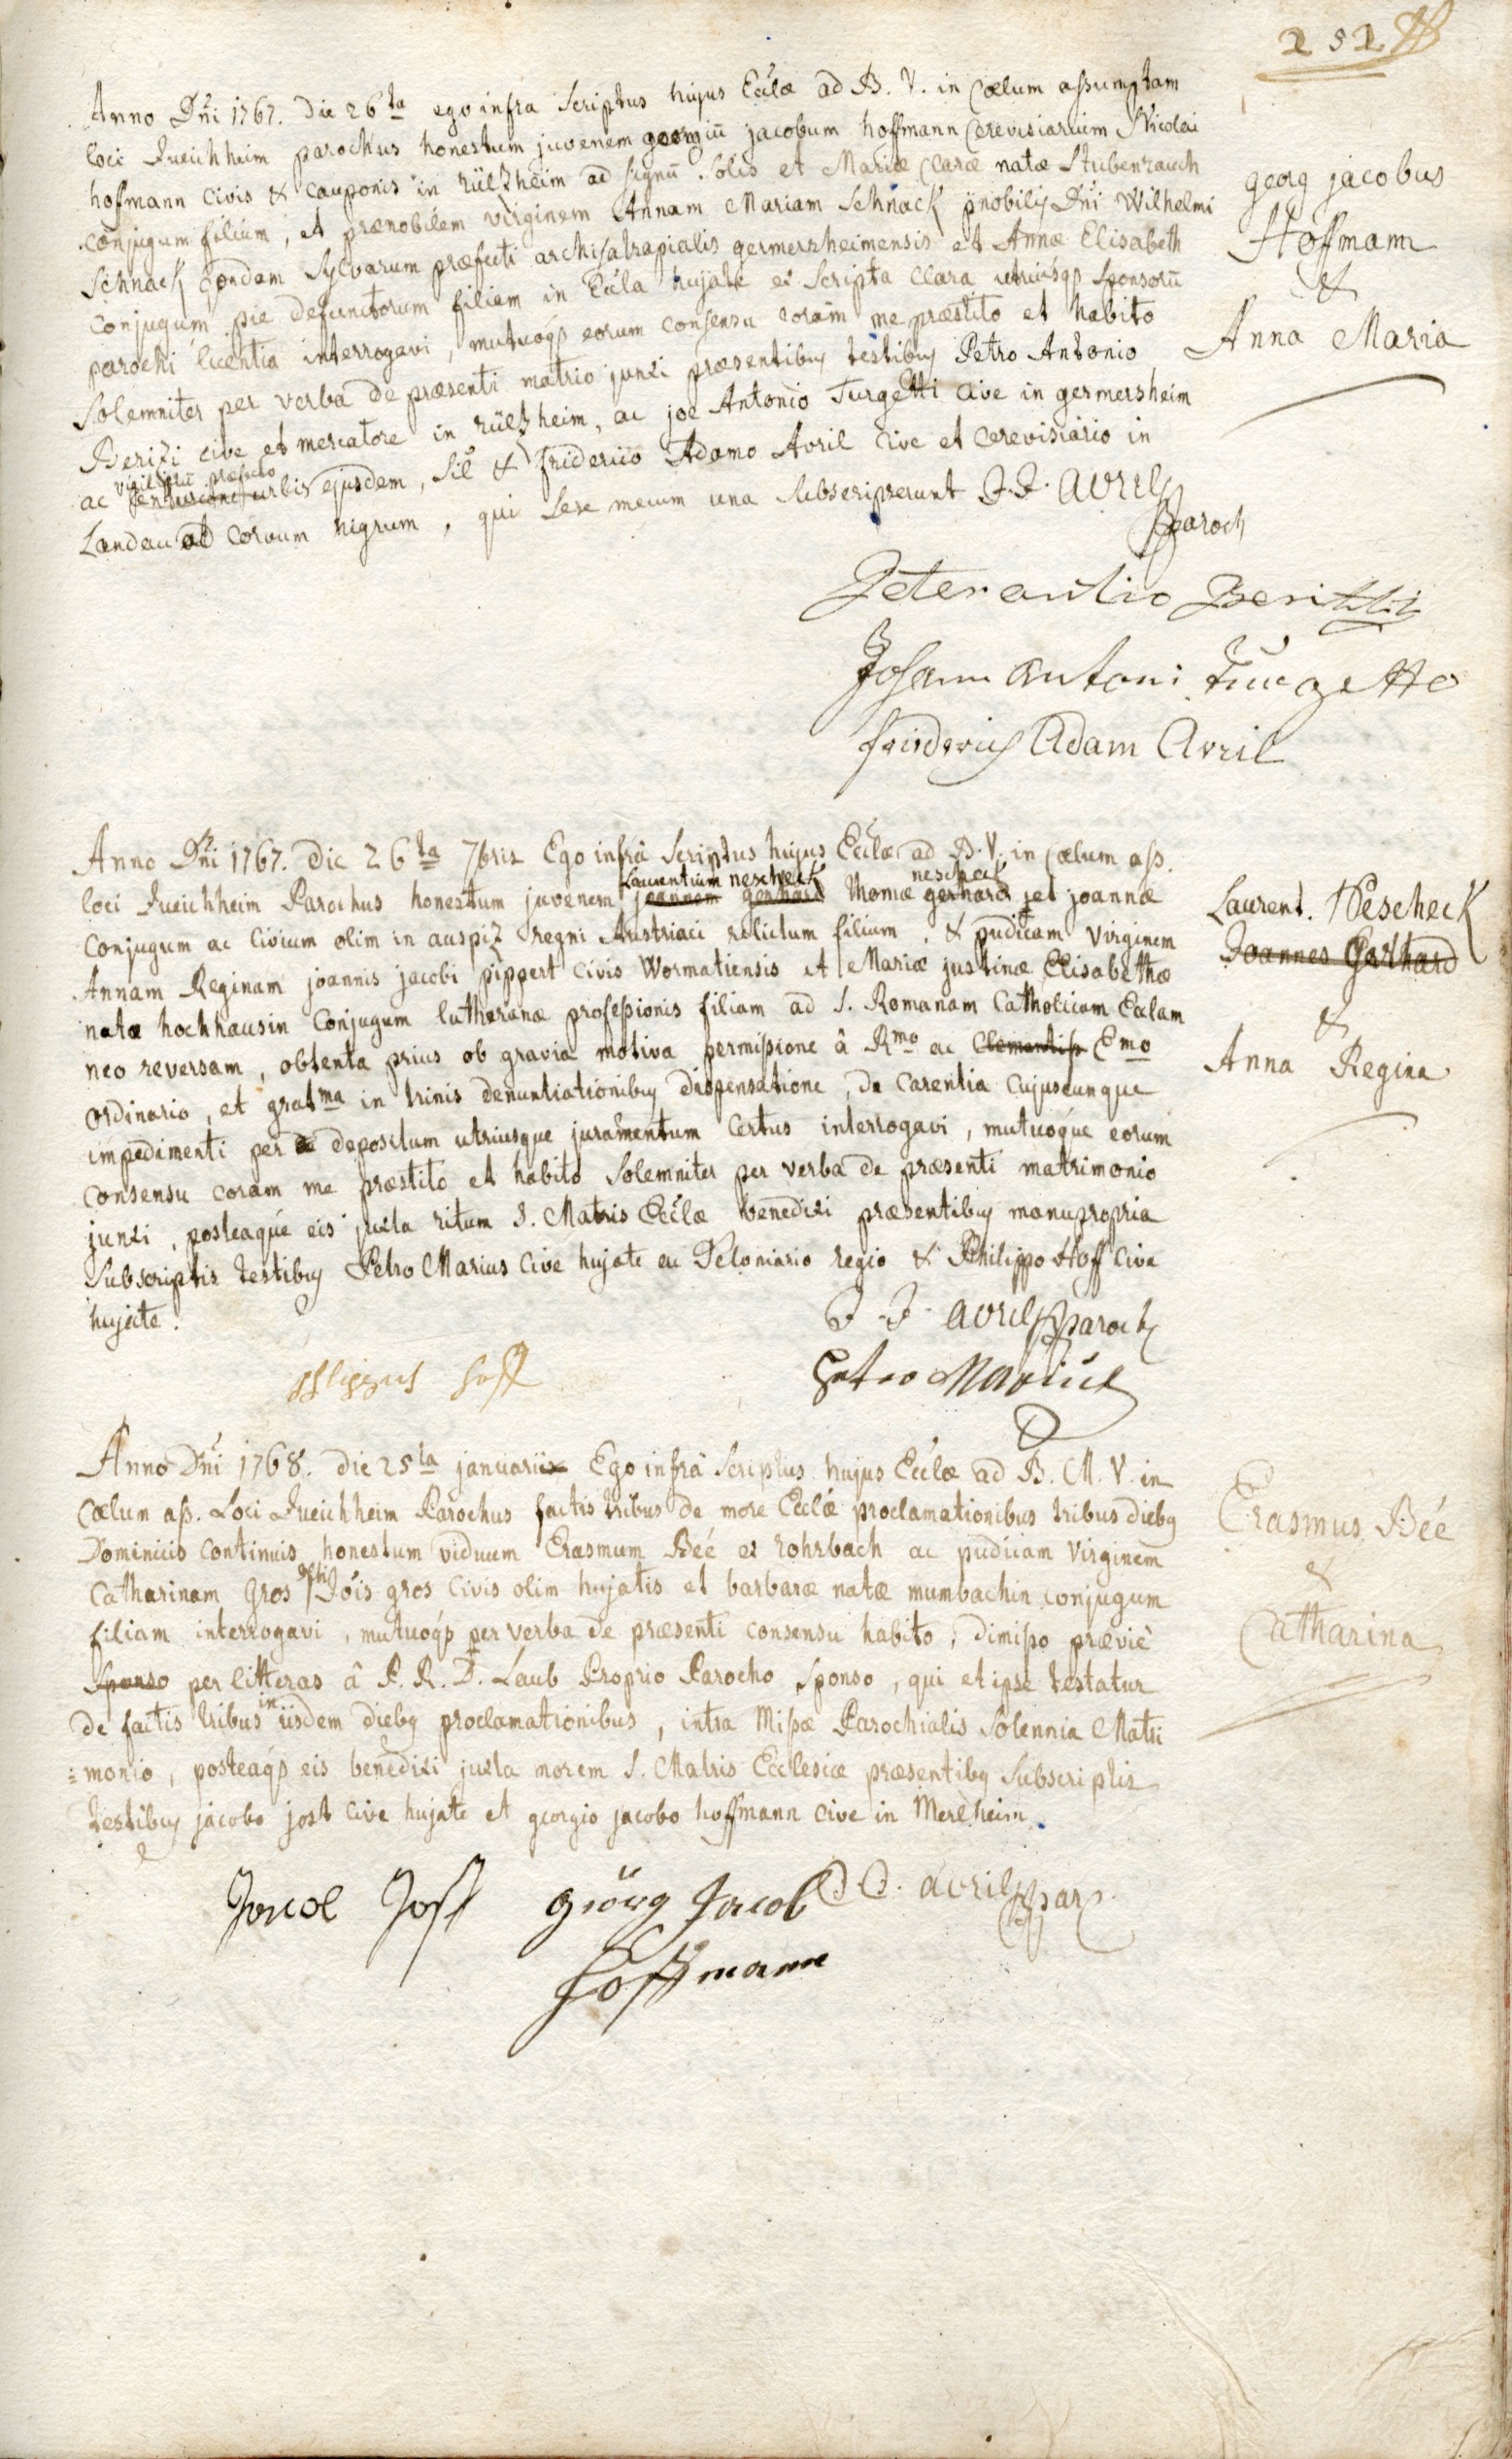 252
Anno Dñi 1767. Die 26ta ego infra Scriptus hujus Ecclæ ad B. V. in Cœlum assumptam
loci Queichheim parochus honestum juvenem georgiū jacobum hoffmann Cerevisiarium Nicolai
hoffmann Civis & Cauponis in rültzheim ad signū Solis et Mariæ Claræ natæ Stubenrauch
conjugum filium, et prænobilem virginem Annam Mariam Schnack pnobilis Dñi Wilhelmi
Schnack qondam Sylvarum præfecti archisatrapialis germersheimensis et Annæ Elisabeth
Conjugum pie defunctorum filiam in Eccla hujate ex Scripta Clara utriusqs Sponsorū
parochi licentia interrogavi, mutuoqs eorum consensu coram me præstito et habito
Solemniter per verba de præsenti matrio junxi præsentibus testibus Petro Antonio
Berizi cive et mercatore in rültzheim, ac joe Antonio Turgetti Cive in germersheim
vigiliarū præfecto
ac urbis ejusdem, Sic & friderico Adamo Avril Cive et Cerevisiario in
Landau ad Corvum nigrum, qui Sese mecum una Subscripserunt J. J. Avril
Paroch
georg jacobus
Hoffmann
&
Anna Maria
Peter antonio Beritzi
Johann Antoni Turgetto
friderich Adam Avril
Anno Dñi 1767. Die 26ta 7bris Ego infra Scriptus hujus Ecclæ ad B. V. in Cœlum ass.
Laurentium nescheck nescheck
loci Queichheim Parochus honestum juvenem joannem gerhard thomæ gerhard et joannæ
Conjugum ac Civium olim in auspiz regni Austriaci relictum filium, & pudicam Virginem
Annam Reginam joannis jacobi pippert Civis Wormatiensis et Mariæ justinæ Elisabethæ
natæ hochhausin Conjugum lutheranæ professionis filiam ad S. Romanam Catholicam Ecclam
neo reversam, obtenta prius ob gravia motiva permissione â Rmo ac Clementiss Emo
Ordinario, et gratma in trinis denuntiationibus dispensatione, de Carentia Cujuscunque
impedimenti per depositum utriusque juramentum Certus interrogavi, mutuoque eorum
consensu coram me præstito et habito Solemniter per verba de præsenti matrimonio
junxi, posteaque eis juxta ritum S. Matris Ecclæ benedixi præsentibus manupropria
Subscriptis testibus Petro Marius Cive hujate ac Teloniario regio & Philippo Hoff Cive
hujate.
J. J. Avril Paroch
Laurent. Nescheck
Joannes Gerhard
&
Anna Regina
Philippus Hoff
Peter Marius
Anno Dñi 1768. Die 25ta januarii Ego infra Scriptus hujus Ecclæ ad B. M. V. in
Cœlum ass. Loci Queichheim Parochus factis tribus de more Ecclæ proclamationibus tribus diebg
Dominicis Continuis honestum viduum Erasmum Béé ex rohrbach ac pudicam Virginem
Catharinam Gros Jois gros Civis olim hujatis et barbaræ natæ mumbachin conjugum
filiam interrogavi, mutuoqs per verba de præsenti consensu habito, dimisso prævie
Sponso per litteras â P. R. D. Laub Proprio Parocho Sponso, qui et ipse testatur
in
de factis tribus iisdem diebg proclamationibus, intra Missæ Parochialis Solennia Matri
=monio, posteaqs eis benedixi juxta morem S. Matris Ecclesiæ præsentibg Subscriptis
testibus jacobo jost Cive hujate et georgio jacobo hoffmann Cive in Merlheim.
Erasmus Béé
&
Catharina
Jacob Jost Görg Jacob J. J. Avril par.
Hoffmann